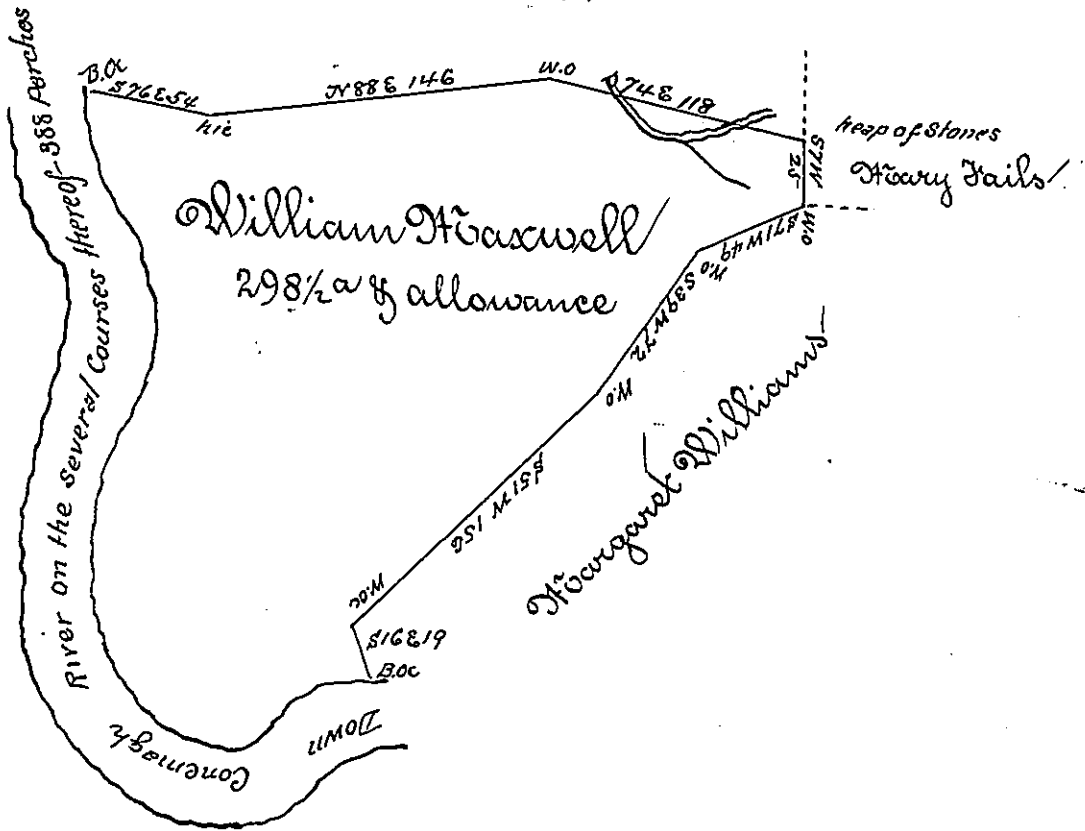 B.O
S76E54
hic
N88E 146
W.O
S 74E 118
heap of Stones
S7W
25
Mary Fails
W.O
S71W49
W.O
S39W72
W.O
S51W 156
W.Oc
S16E19
B.Oc
William Maxwell
298½ a & allowance
Margaret Williams
Down
Conemagh
River on the several Courses thereof 388 Perches